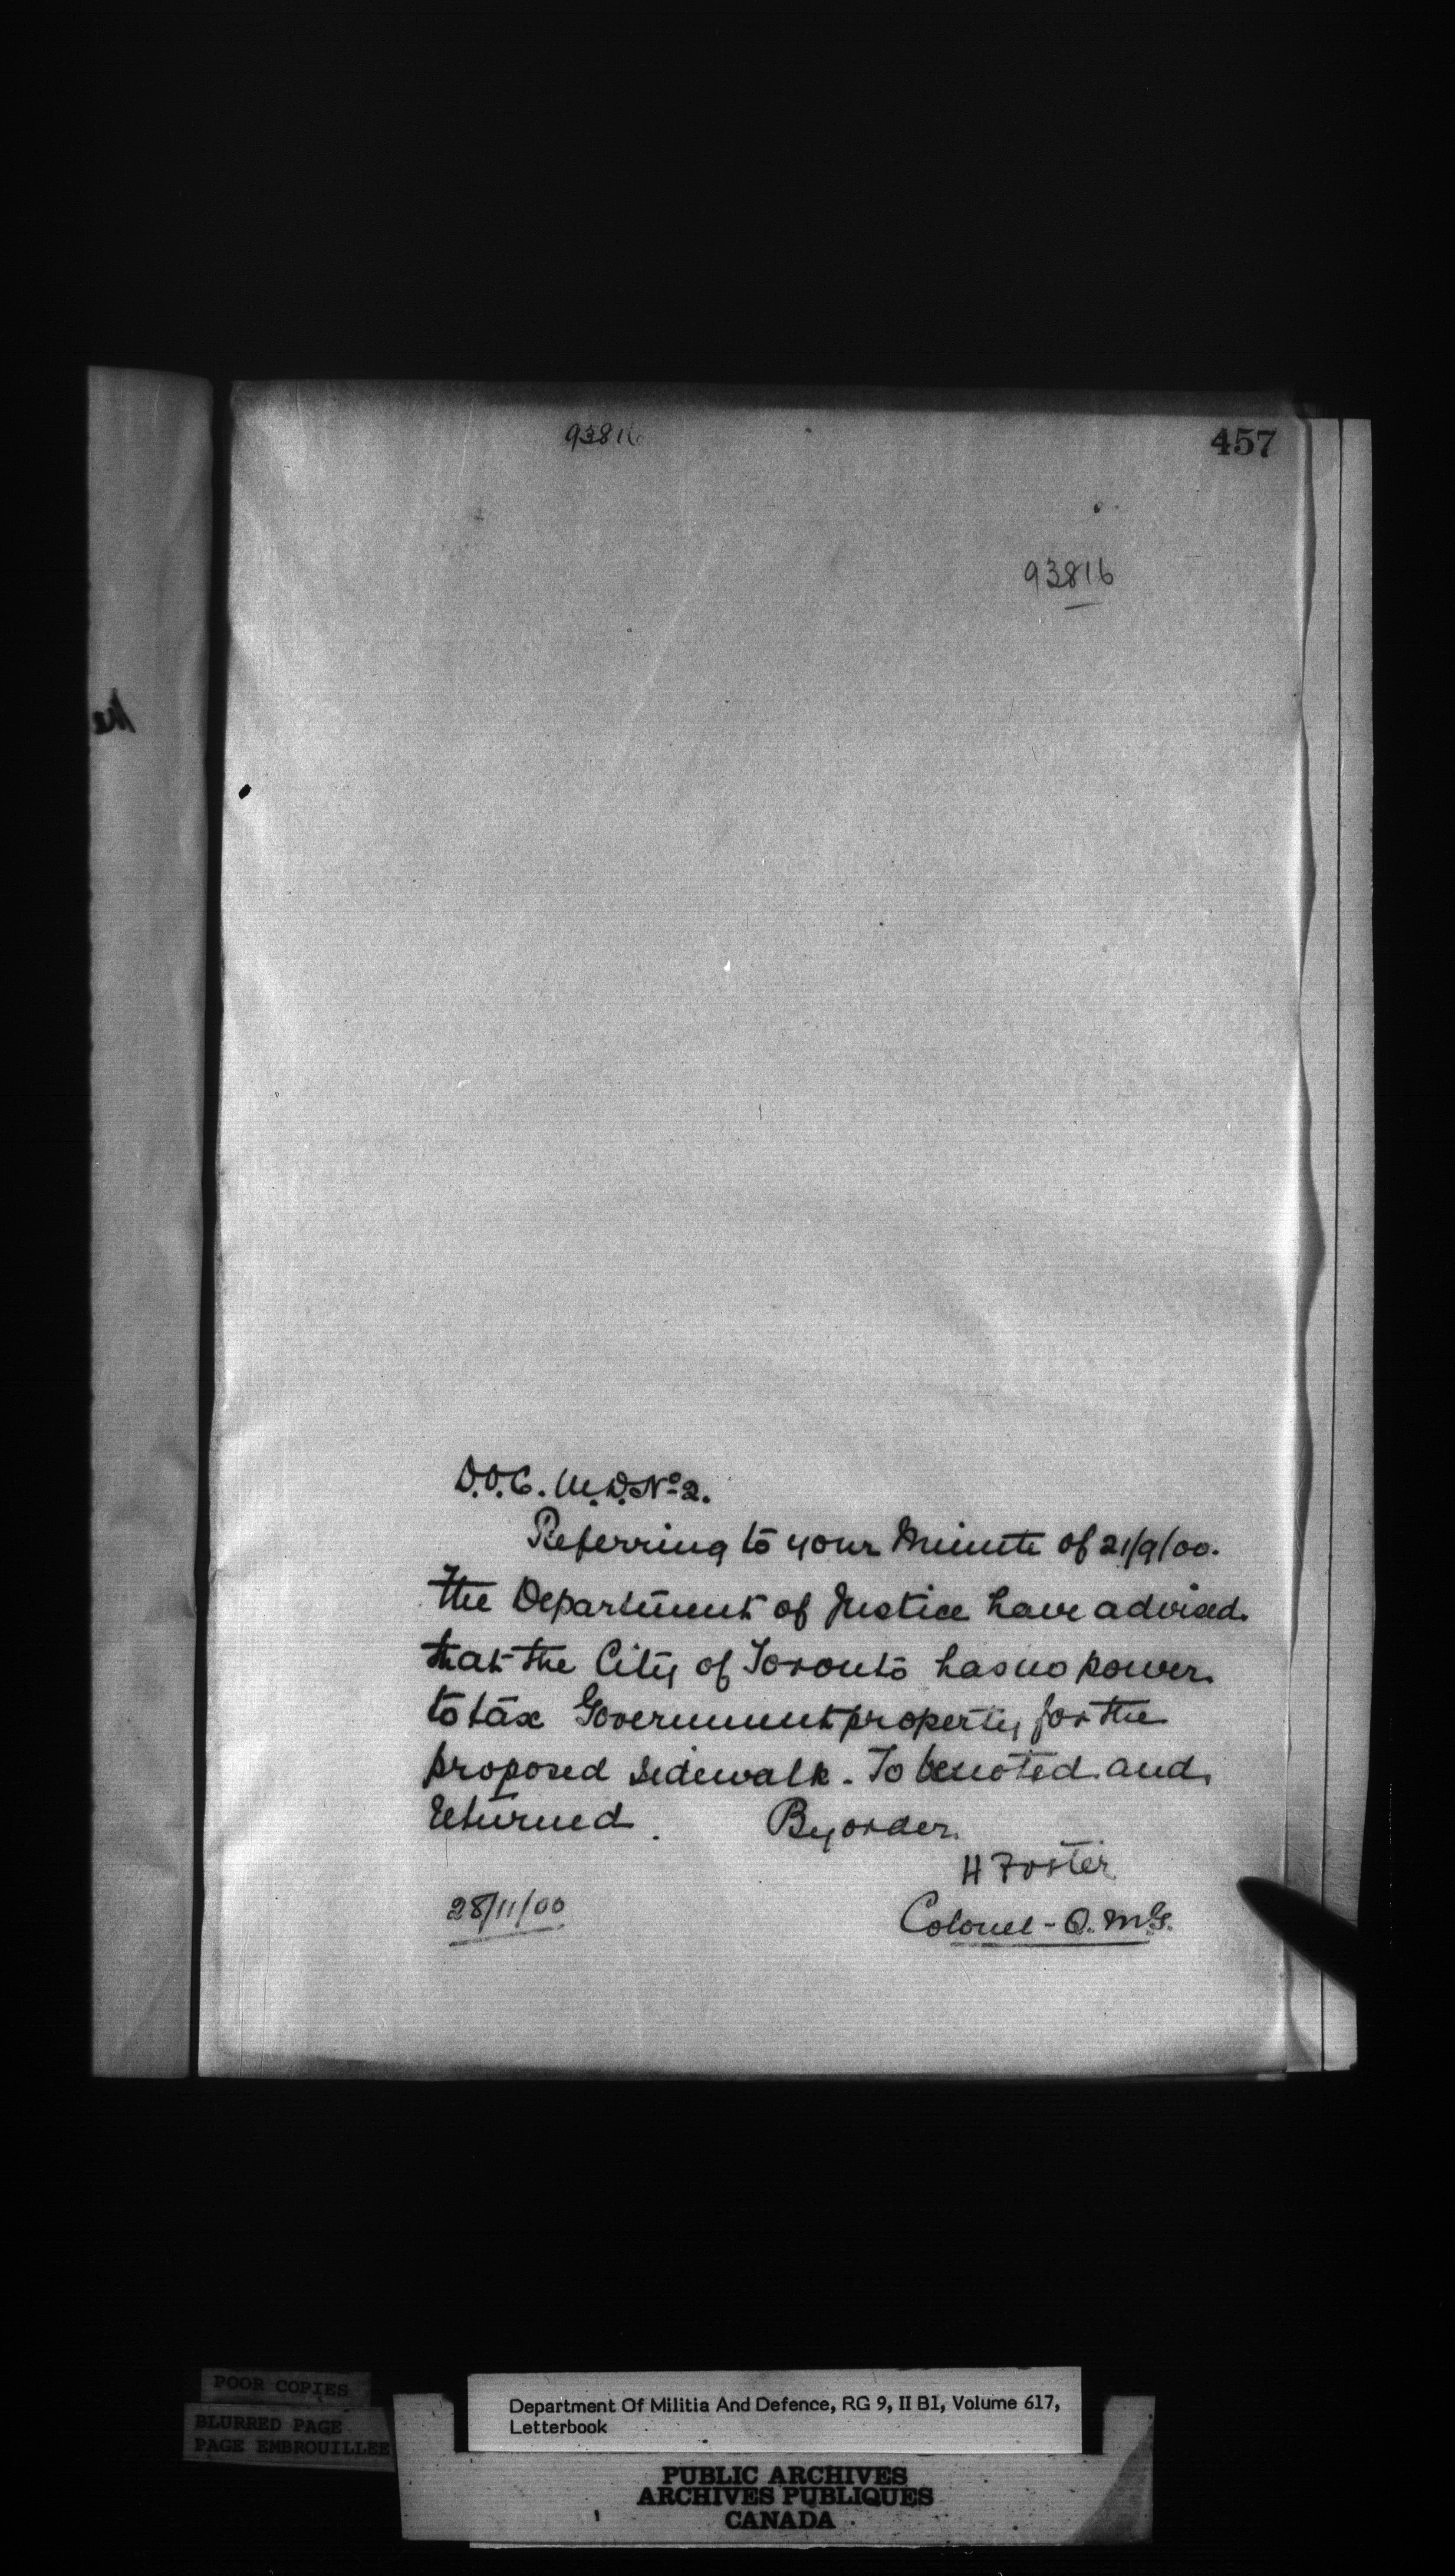 93816
457
93816
D.O.C. M.D. No 2.
Referring to your Minute of 21/9/00.
The Department of Justice have advised
that the City of Toronto has no power
to tax Government property for the
proposed sidewalk. To be noted and
returned. By order.
H Foster
28/11/00
Colonel - Q.M.G.
POOR COPIES
BLURRED PAGE
PAGE EMBROUILLEE
Department Of Militia And Defence, RG 9, II B1, Volume 617,
Letterbook
PUBLIC ARCHIVES
ARCHIVES PUBLIQUES
CANADA